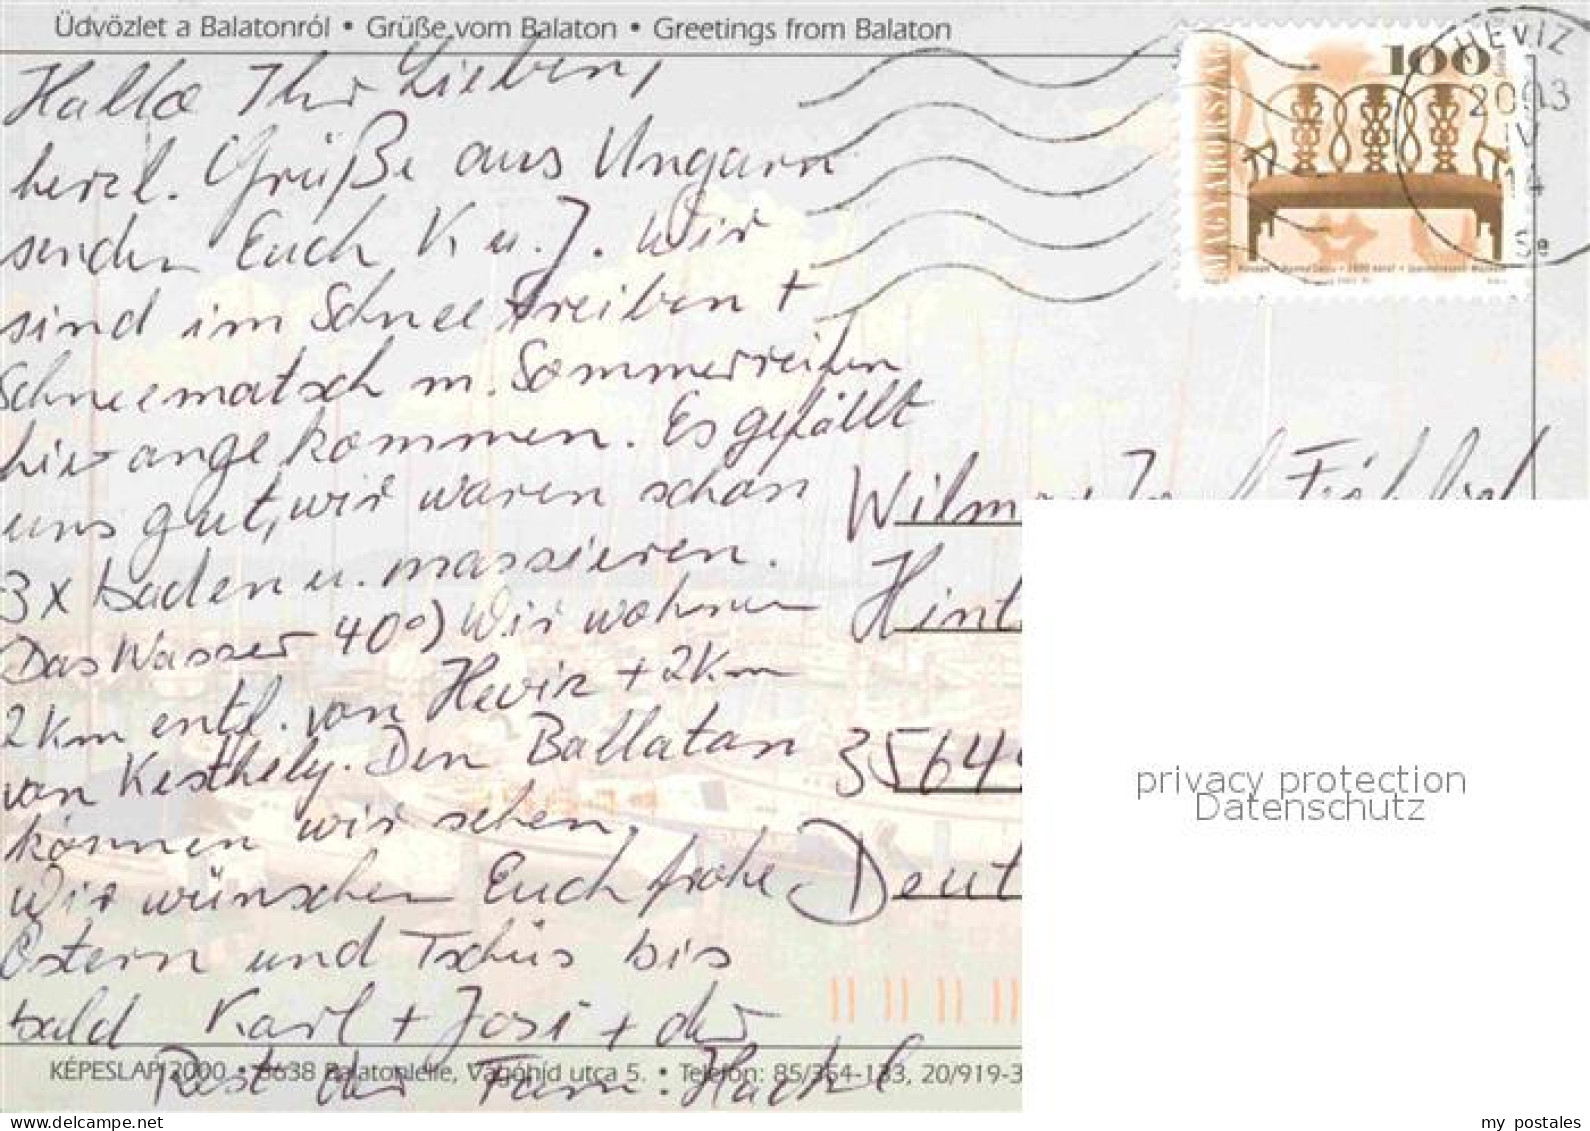 Üdvözlet a Balatonról • Grüße vom Balaton • Greetings from Balaton
Hallo Ihr Lieben,
herzl. Grüße aus Ungarn
senden Euch K u. J. Wir
sind im Schneetreiben +
Schneematsch m. Sommerreifen
hier angekommen. Es gefällt
uns gut, wir waren schon
3x baden u. massieren.
Das Wasser 40°) Wir wohnen
2 Km entf. von Heviz + 2 Km
von Kesthely. Den Ballaton
können wir sehen,
Wir wünschen Euch frohe
Ostern und Tschüs bis
bald Karl + Josi + der
Rest der Fam:
KÉPESLAP 2000 • 8638 Balatonlelle, Vágóhíd utca 5. • Telefon: 85/354-133, 20/919-3
MAGYARORSZÁG
100
HÉVÍZ
2003
IV
14
Wilm
Hint
3564
Deut
privacy protection
Datenschutz
www.delcampe.net
my_postales